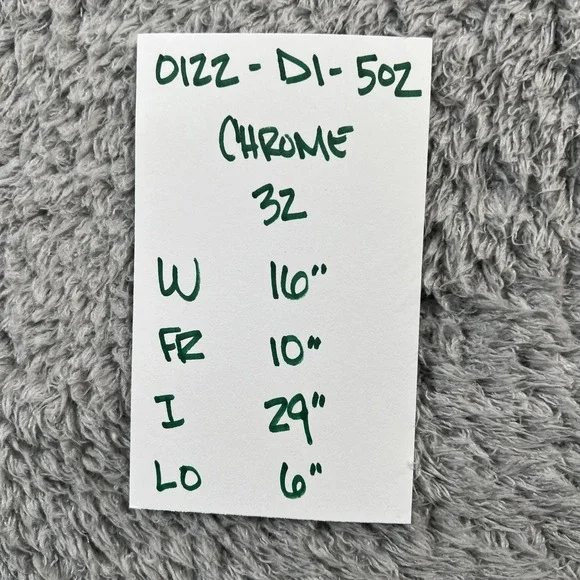 0122-D1-502
CHROME
32
W 16"
FR 10"
I 29"
LO 6"